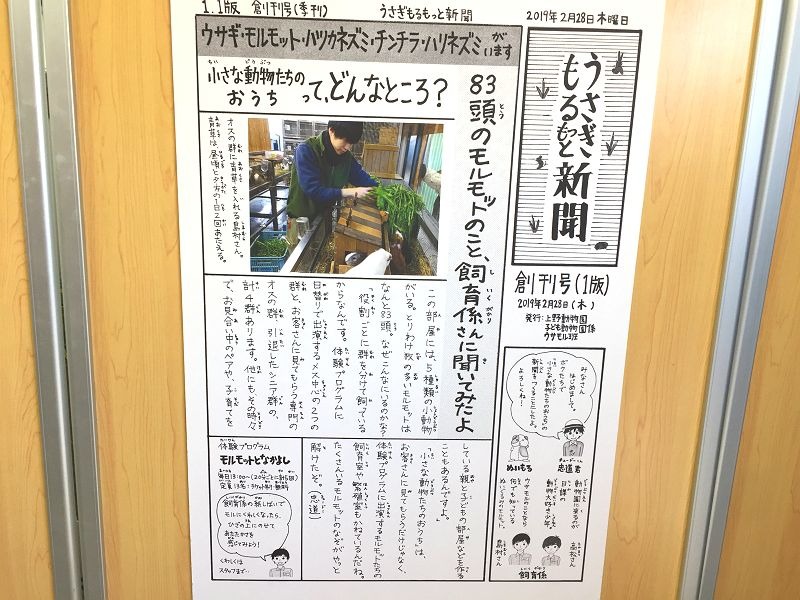 1.1版 創刊号(季刊) うさぎもるもっと新聞 2019年2月28日木曜日
うさぎもるもっと新聞
創刊号(1版)
2019年2月28日(木)
発行:上野動物園
子ども動物園係
ウサモル班
ウサギ・モルモット・ハツカネズミ・チンチラ・ハリネズミがいます
小さな動物たちのおうちって、どんなところ?
83頭のモルモットのこと、飼育係さんに聞いてみたよ
オスの群に青草を入れる島村さん。
青草は、昼頃と夕方の1日2回あたえる。
この部屋には、5種類の小動物
がいる。とりわけ数の多いモルモットは
なんと83頭。なぜこんなにいるのかな?
役割ごとに群を分けて飼っている
からなんです。体験プログラムに
日替りで出演するメス中心の2つの
群と、お客さんに見てもらう専門の
オスの群、引退したシニア群の、
計4群あります。他にも、その時々
で、お見合い中のペアや、子育てを
している親子の部屋などを作る
こともあるんですよ。
小さな動物たちのおうちは、
お客さんに見てもらうだけじゃなく、
体験プログラムに出演するモルモットたちの
飼育室や繁殖室もかねているんだね。
たくさんいるモルモットのなぞがやっと
解けたぞ。(忠道)
みなさん
はじめまして。
ボクたちで
小さな動物たちのおうちの
新聞をつくることにしたよ。
よろしくね!
ぬいもる
忠道君
動物園に来るのが
日課の
動物大好き少年。
ウサモルのことなら
何でも知っている
ぬいぐるみのモルモット。
高松さん
島村さん
飼育係
体験プログラム
モルモットとなかよし
毎日13:00〜(20分ごとに計6回)
定員13名:チケット制・無料
飼育係の紙しばいで
モルにくわしくなったら、
ひざの上にのせて
あたたかさを
感じてみよう!
くわしくは
スタッフまで…